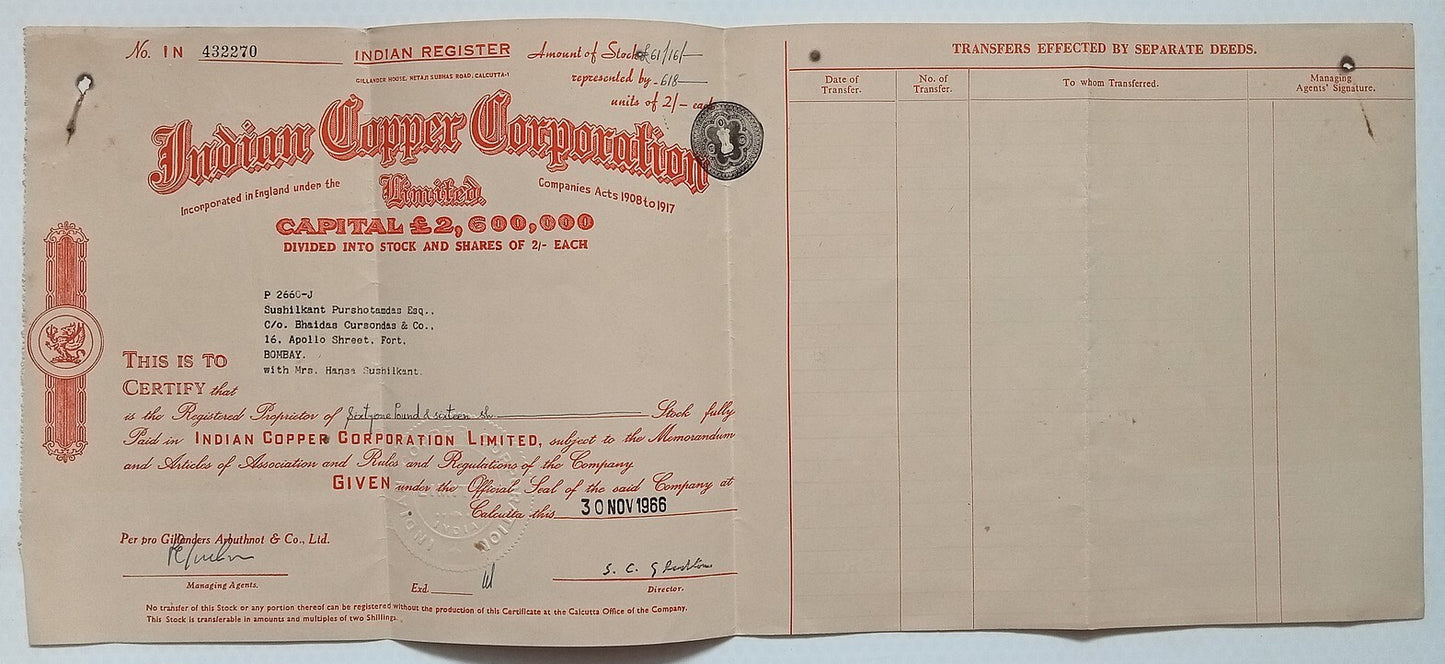 No. IN 432270
INDIAN REGISTER
GILLANDER HOUSE, NETAJI SUBHAS ROAD, CALCUTTA-1
Amount of Stock £61/16/-
represented by 618
units of 2/- each
Indian Copper Corporation
Limited.
Incorporated in England under the Companies Acts 1908 to 1917
CAPITAL £2,600,000
DIVIDED INTO STOCK AND SHARES OF 2/- EACH
P 2660-J
Sushilkant Purshotamdas Esq.,
C/o. Bhaidas Cursondas & Co.,
16, Apollo Shreet, Fort,
BOMBAY.
with Mrs. Hansa Sushilkant.
THIS IS TO
CERTIFY that
is the Registered Proprietor of Sixtyone Pound & sixteen sh Stock fully
Paid in INDIAN COPPER CORPORATION LIMITED, subject to the Memorandum
and Articles of Association and Rules and Regulations of the Company
GIVEN under the Official Seal of the said Company at
Calcutta this 30 NOV 1966
Per pro Gillanders Arbuthnot & Co., Ltd.
Managing Agents.
Exd.
S. C.
Director.
No transfer of this Stock or any portion thereof can be registered without the production of this Certificate at the Calcutta Office of the Company.
This Stock is transferable in amounts and multiples of two Shillings.
TRANSFERS EFFECTED BY SEPARATE DEEDS.
Date of Transfer.
No. of Transfer.
To whom Transferred.
Managing Agents' Signature.